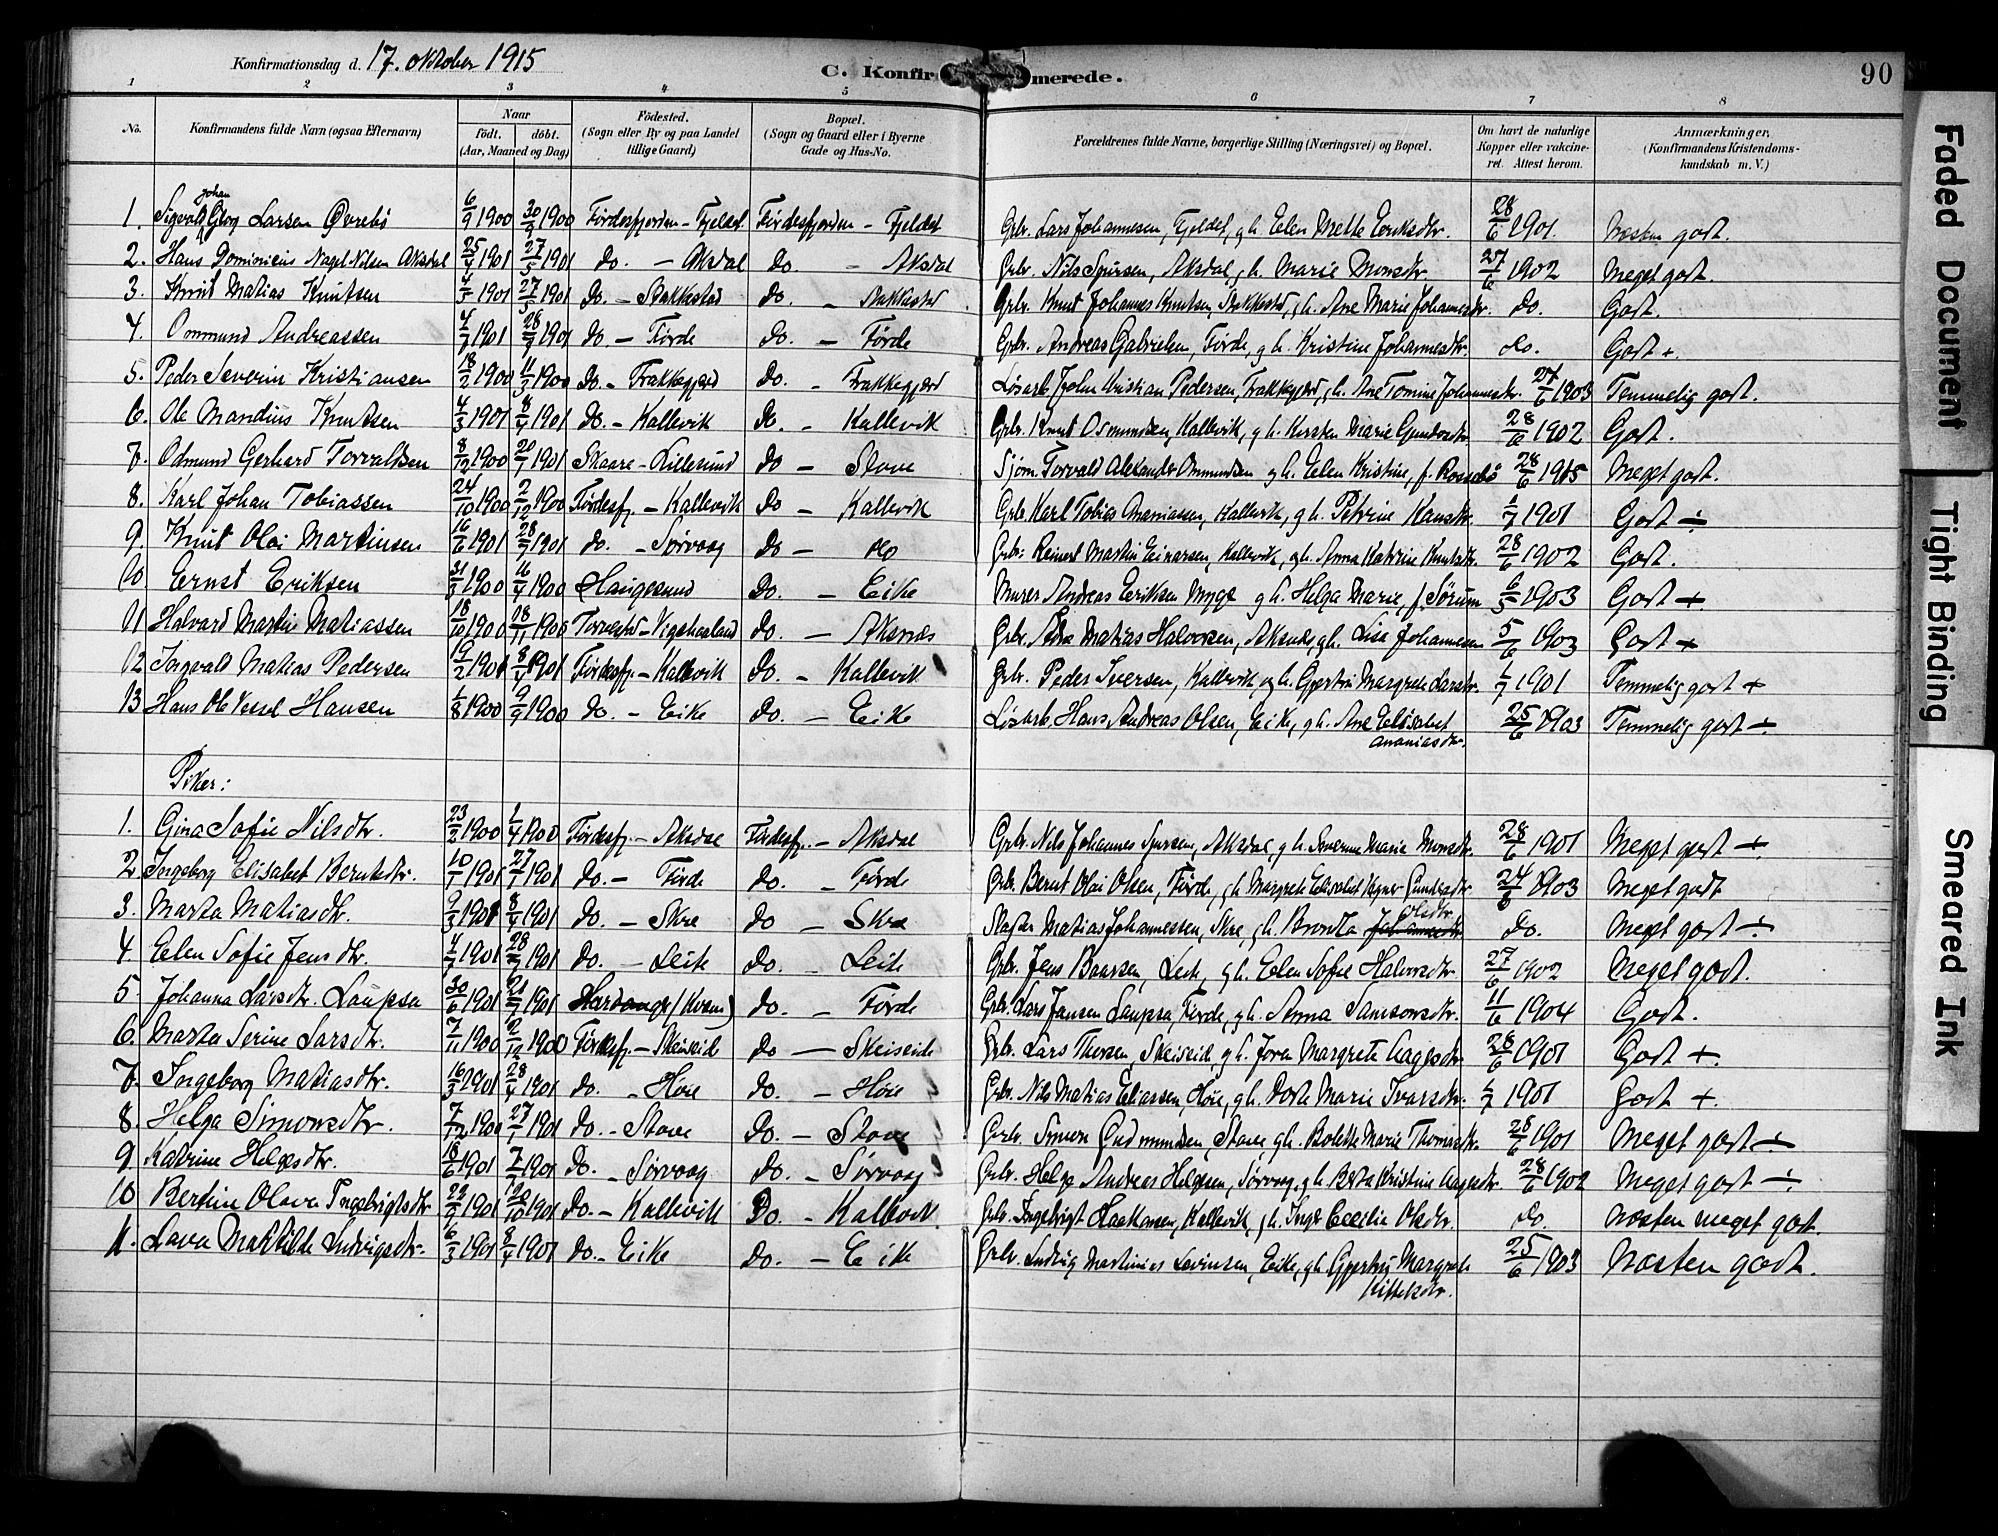 Konfirmationsdag d. 17. oktober 1915 C. Konfirmerede. 90
1 2 3 4 5 6 7 8
No. Konfirmandens fulde Navn (ogsaa Efternavn) Naar født. døbt. (Aar, Maaned og Dag) Fødested. (Sogn eller By og paa Landet tillige Gaard) Bopæl. (Sogn og Gaard eller i Byerne Gade og Hus-No. Forældrenes fulde Navne, borgerlige Stilling (Næringsvei) og Bopæl. Om havt de naturlige Kopper eller vakcineret. Attest herom. Anmærkninger, (Konfirmandens Kristendomskundskab m. V.)
1. Sigvald Johan Larsen Øvrebø 6/9 1900 1900 Førdesfjorden - Fjeldet Førdesfjorden - Fjeldet Grbr. Lars Johannesen, Fjeldet, g h. Elen Mette Eriksdtr. 28/6 1901. Næsten godt.
2. Hans Dominicus Nagel Nilsen Aksdal 25/4 1901 27/5 1901 do. - Aksdal do. - Aksdal Grbr. Nils Spursen, Aksdal, g h. Marie Monsdtr. 27/6 1902 Meget godt.
3. Knut Matias Knutsen 4/5 1901 27/5 1901 do. - Stakkestad do. - Stakkestad Grbr. Knut Johannes Knutsen, Stakkestad, g h. Ane Marie Johannesdtr. do. Godt.
4. Ommund Andreassen 4/7 1901 28/7 1901 do - Førde do. - Førde Grbr. Andreas Gabrielsen, Førde, g h. Kristine Johannesdtr. do. Godt +.
5. Peder Severin Kristiansen 18/2 1900 11/3 1900 do. - Frakkagjerd do. - Frakkagjærd Løsarb. John Kristian Pedersen, Frakkagjærd, g h. Ane Tomine Johannesdtr. 27/6 1903 Temmelig godt.
6. Ole Mandius Knutsen 4/3 1901 8/4 1901 do. - Kallevik do. - Kallevik Grbr. Knut Osmundsen, Kallevik, g h. Kirsten Marie 28/6 1902 Godt.
7. Odmund Gerhard Torvaldsen 8/12 1900 20/1 1901 Skaare - Lillesund do - Stove Sjøm. Torvald Alexander Ommundsen g h. Elen Kristine, f. 28/6 1915 Meget godt.
8. Karl Johan Tobiassen 24/10 1900 2/12 1900 Førdesfj. - Kallevik do - Kallevik Grbr. Karl Tobias Ananiassen, Kallevik, g h. Petrine Hansdtr. 1/7 1901 Godt ÷
9. Knut Olai Martinsen 16/6 1901 28/7 1901 do. - Sørvaag do - do Grbr. Reinert Martin Einarsen, Kallevik, g h. Anna Katrine Knutsdtr. 28/6 1902 Godt.
10 Ernst Eriksen 31/3 1900 16/4 1900 Haugesund do. - Eike Murer Andreas Eriksen Myge g h. Helga Marie, f. Sørum 6/5 1903 Godt +
11 Halvard Martin Matiassen 18/10 1900 18/11 1900 Torvestad - Vigshaaland do. - Aksnæs Grbr. Matias Halvorsen, Aksnæs, g h. Lisa Johannesen 5/6 1903 Godt +
12 Ingvald Matias Pedersen 19/2 1901 8/4 1901 Førdesfj. - Kallevik do. - Kallevik Grbr. Peder Iversen, Kallevik, g h. Gjertrú Margrete Larsdtr. 1/7 1901 Temmelig godt +
13 Hans Ole Vessel Hansen 1/8 1900 9/9 1900 do. - Eike do. - Eike Løsarb. Hans Andreas Olsen, Eike, g h. Ane Elisabet 25/6 1903 Temmelig godt ÷.
Ananiasdtr.
Piker:
1. Gina Sofie Nilsdtr. 23/2 1900 1/4 1900 Førdesfj. - Aksdal Førdesfj. - Aksdal Grbr. Nils Johannes Spursen, Aksdal, g h. Severine Marie Monsdtr. 28/6 1901 Meget godt ÷.
2. Ingeborg Elisabet Berntsdtr. 10/1 1901 27/1 1901 do. - Førde do. - Førde Grbr. Bernt Olai Olsen, Førde, g h. Margrete Elisabet 24/6 1903 Meget godt
3. Marta Matiasdtr. 9/3 1901 8/4 1901 do. - Skre do - Skre Slagter Matias Johannessen, Skre, g h. Bronla Olsdtr. do. Meget godt ÷
4. Elen Sofie Jensdtr. 4/7 1901 28/7 1901 do. - Leite do. - Leite Grbr. Jens Baarsen, Leite, g h. Elen Sofie Halvorsdtr. 27/6 1902 Meget godt.
5. Johanna Larsdtr. Laupsa 30/6 1901 21/7 1901 Hardanger (Kvam) do. - Førde Grbr. Lars Jansen Laupsa, Førde, g h. Anna Samsonsdtr. 11/6 1904 Godt.
6. Marta Serine Larsdtr. 7/11 1900 2/12 1900 Førdesfj. - Skeiseid do - Skeiseide Grbr. Lars Thorsen, Skeiseid, g h. Joren Margrete Aagesdtr. 28/6 1901 Godt +.
7. Ingeborg Matiasdtr. 16/3 1901 28/4 1901 do. - Høie do. - Høie Grbr. Nils Matias Eliassen, Høie, g h. Dorte Marie Ivarsdtr. 1/7 1901 Godt +.
8. Helga Simonsdtr. 7/12 1900 27/1 1901 do. - Stove do. - Stove Grbr. Simon Gudmundsen, Stove, g h. Bolette Marie Thomasdtr. 28/6 1901 Meget godt ÷
9. Katrine Helgesdtr. 18/6 1901 7/7 1901 do. - Sørvaag do. - Sørvaag Grbr. Helge Andreas Helgesen, Sørvaag, g h. Berta Kristine Aagesdtr. 28/6 1902 Meget godt ÷.
10 Bertine Olava Ingebrigtsdtr 22/9 1901 20/10 1901 do. - Kallevik do. - Kallevik Grbr. Ingebrigt Haakonsen, Kallevik, g h. Inger Cecilie Olsdtr. do. Næsten meget godt.
11. Lava Maktilde Ludvigsdtr. 6/3 1901 8/4 1901 do. - Eike do. - Eike Grbr. Ludvig Martinius Lavinsen, Eike, g h. Gjertrú Margrete 25/6 1903 Næsten godt.
Kittelsdtr.
Faded Document
Tight Binding
Smeared Ink